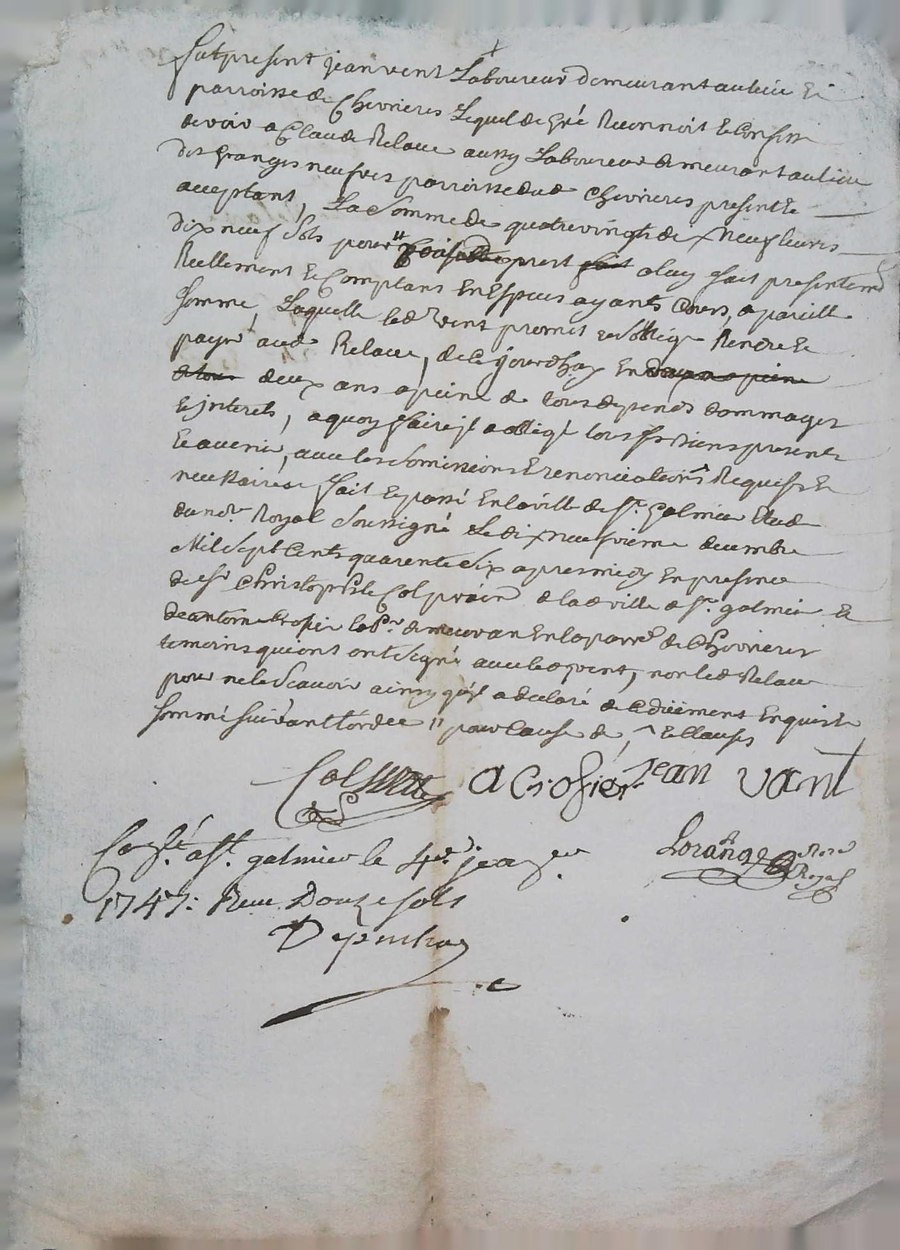 fut present jean vent Laboureur demeurant au lieu et
parroisse de Chevrieres Lequel de gré Reconnoit & Confesse
devoir a Claude Relave aussy Laboureur demeurant au lieu
des granges neufves parroisse dud Chevrieres present &
acceptant, La somme de quatre vingts dix neuf livres
dix neuf sols pour " prest a luy fait presentemt
Reellement & Comptant En Especes ayants Cours, a pareille
somme, Laquelle led vent promet & s'oblige Rendre &
payer aud Relave, de ce jourdhuy En
deux ans a peine de tous depends dommages
& interets, a quoy faire il a obligé tous ses biens presents
& a venir, avec les soumissions & renonciations Requises &
necessaires, fait & passé En la ville de st. galmier Etude
du nore. Royal soussigné Le dix neufvieme decembre
Mil sept Cents quarente six apres midy En presence
de sr Christophle Colp de lad ville de st. galmier &
de antoine Crosier labr. demeurant En la parre. de Chevrieres
temoins qui ont signé avec led vent, non led Relave
pour ne le scavoir ainsy qu'il a declaré de ce duement Enquis &
sommé suivant l'ordce " pour Cause de, & Clauses
a Crosier Jean vant
Loranger nore Royal
Conlé. a st. galmier le 4e. janer
1747: Receu Douze sols